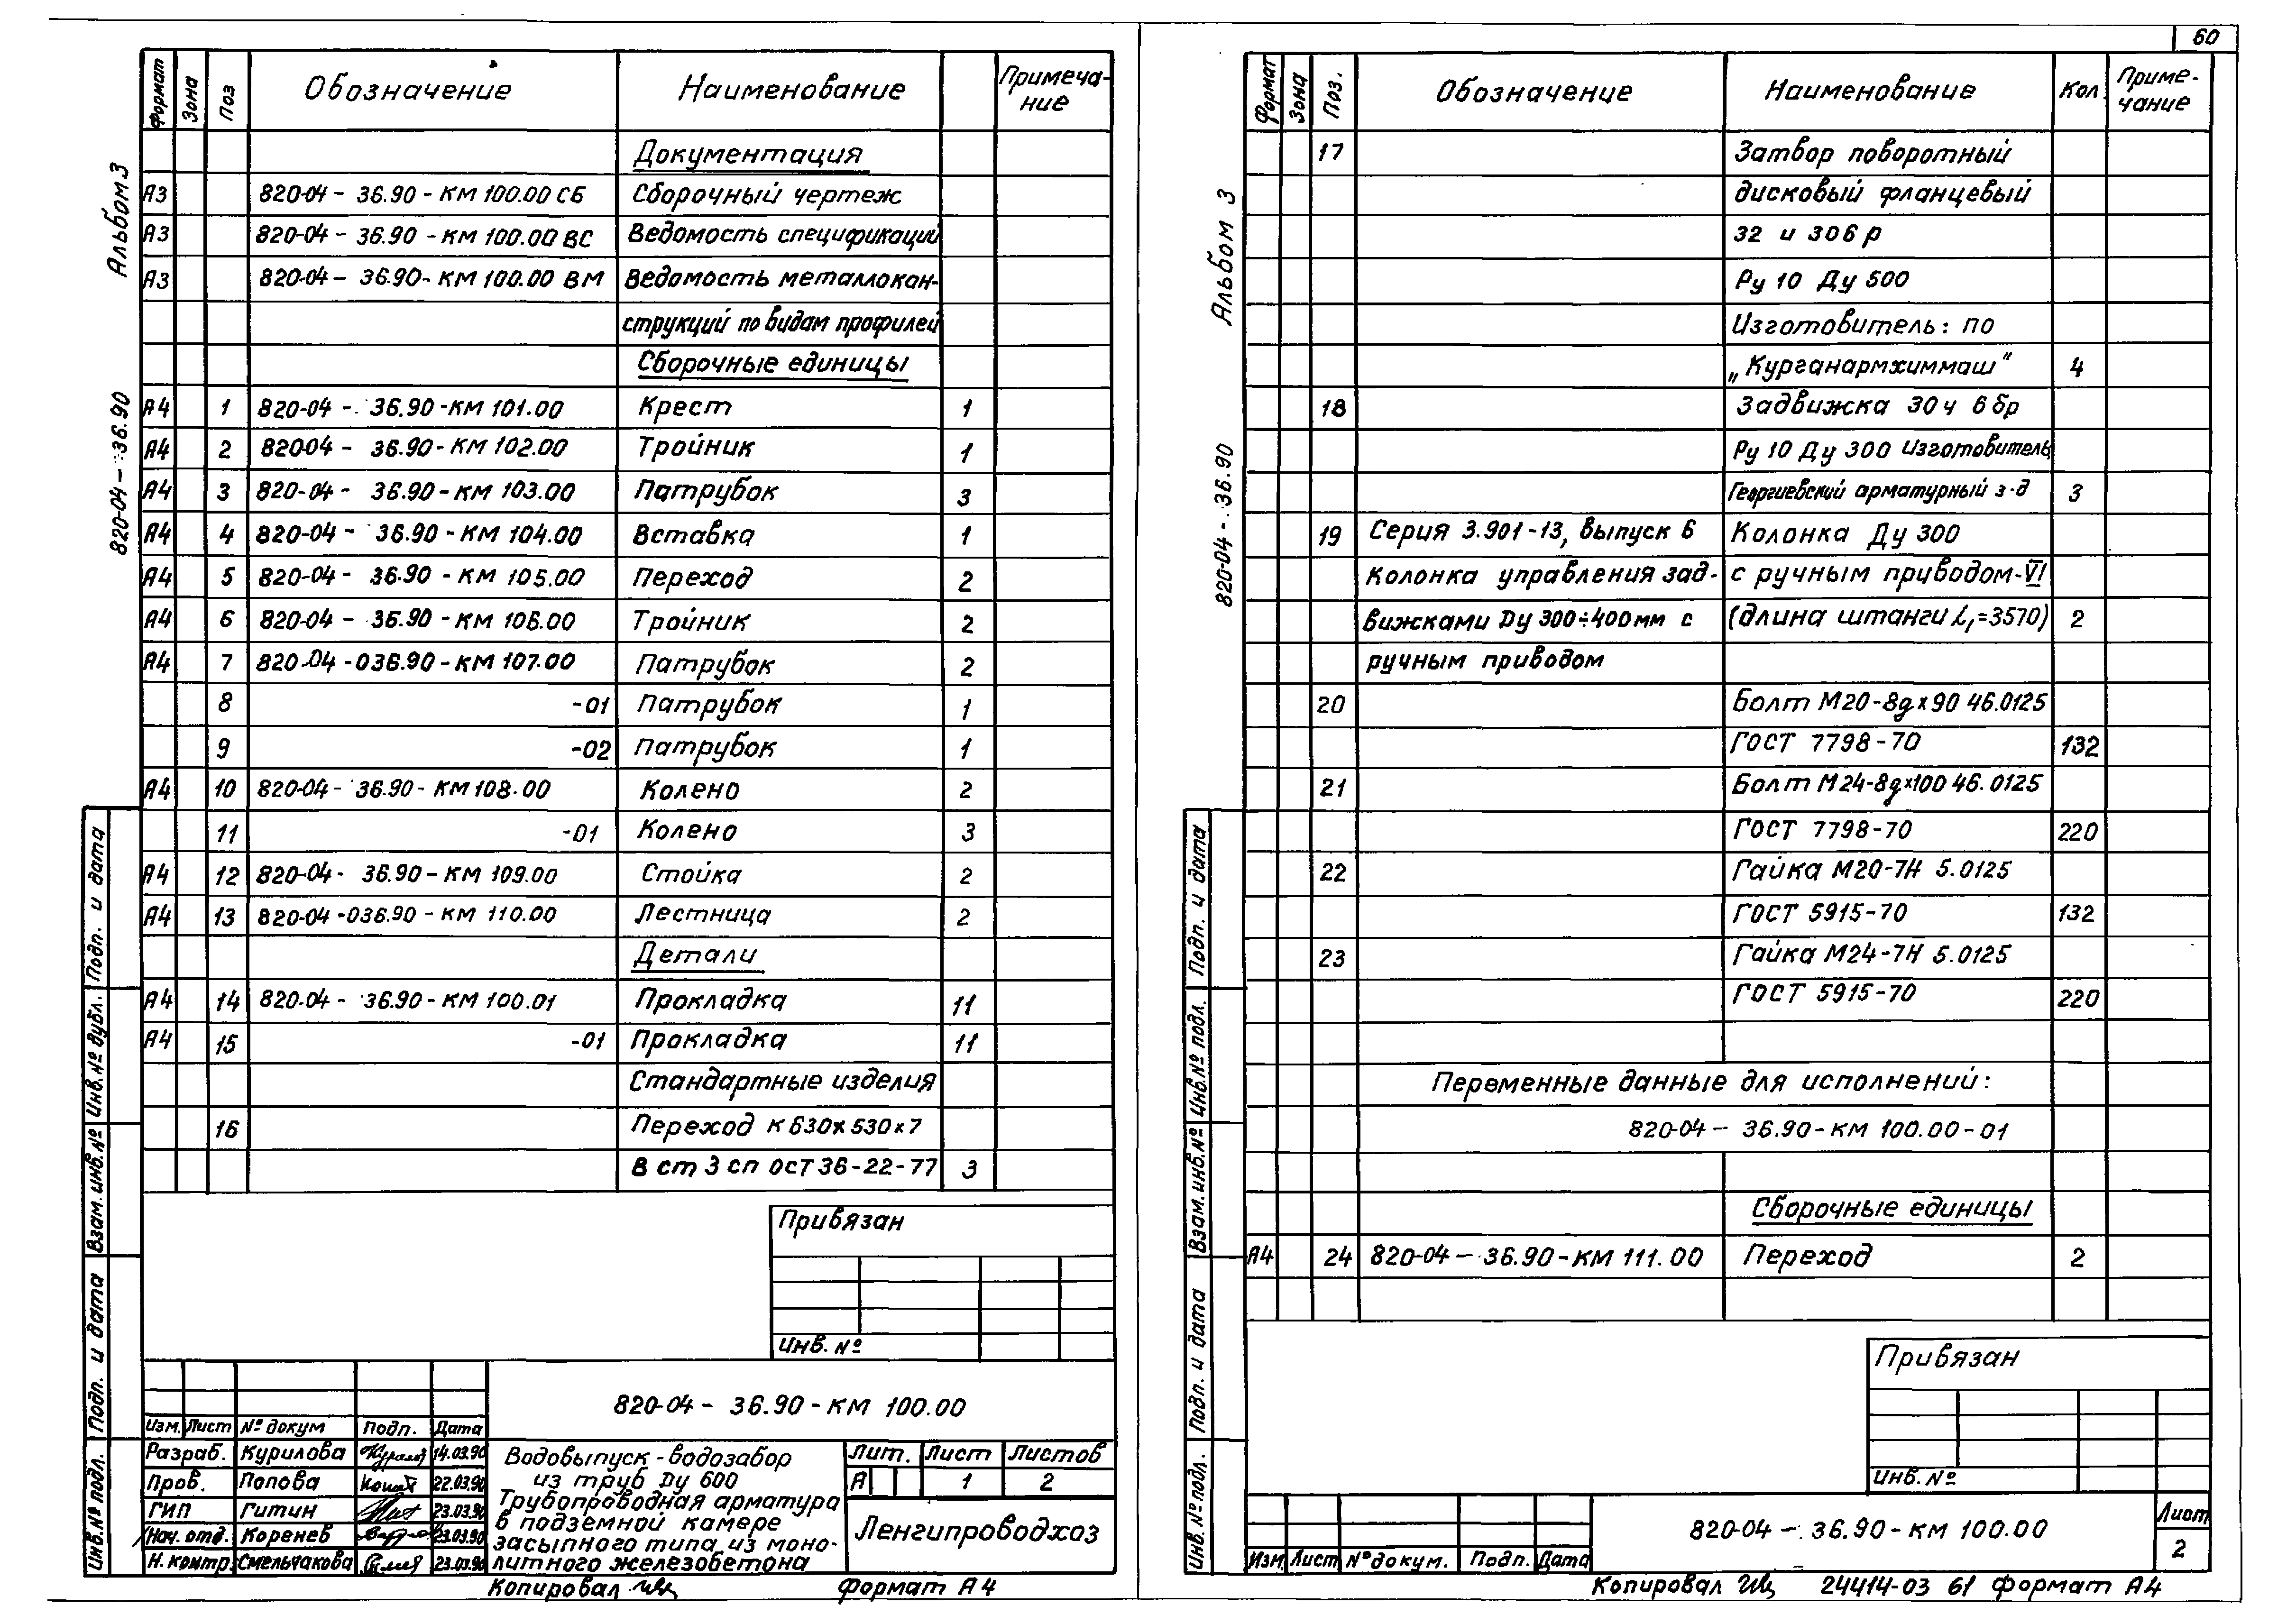 60
Альбом 3
820-04-36.90
Формат Зона Поз Обозначение Наименование Примеча-
ние
Документация
А3 820-04-36.90-КМ 100.00 СБ Сборочный чертеж
А3 820-04-36.90-КМ 100.00 ВС Ведомость спецификаций
А3 820-04-36.90-КМ 100.00 ВМ Ведомость металлокан-
струкций по видам профилей
Сборочные единицы
А4 1 820-04-36.90-КМ 101.00 Крест 1
А4 2 820-04-36.90-КМ 102.00 Тройник 1
А4 3 820-04-36.90-КМ 103.00 Патрубок 3
А4 4 820-04-36.90-КМ 104.00 Вставка 1
А4 5 820-04-36.90-КМ 105.00 Переход 2
А4 6 820-04-36.90-КМ 106.00 Тройник 2
А4 7 820-04-036.90-КМ 107.00 Патрубок 2
8 -01 Патрубок 1
9 -02 Патрубок 1
А4 10 820-04-36.90-КМ 108.00 Колено 2
11 -01 Колено 3
А4 12 820-04-36.90-КМ 109.00 Стойка 2
А4 13 820-04-036.90-КМ 110.00 Лестница 2
Детали
А4 14 820-04-36.90-КМ 100.01 Прокладка 11
А4 15 -01 Прокладка 11
Стандартные изделия
16 Переход К 630х530х7
В ст 3 сп ОСТ 36-22-77 3
Привязан
Инв. №
820-04-36.90-КМ 100.00
Изм. Лист № докум Подп. Дата
Разраб. Курилова 14.03.90
Пров. Попова 22.03.90
ГИП Гитин 23.03.90
Нач. отд. Коренев 23.03.90
Н. контр. Смельчакова 23.03.90
Водовыпуск-водозабор
из труб Ду 600
Трубопроводная арматура
в подземной камере
засыпного типа из моно-
литного железобетона
Лит. Лист Листов
А 1 2
Ленгипроводхоз
Копировал Формат А4
Инв. № подл. Подп. и дата Взам. инв. № Инв. № дубл. Подп. и дата
Альбом 3
820-04-36.90
Формат Зона Поз. Обозначение Наименование Кол. Приме-
чание
17 Затвор поворотный
дисковый фланцевый
32 и 306 р
Ру 10 Ду 500
Изготовитель: по
„Курганармхиммаш" 4
18 Задвижка 30ч 6 бр
Ру 10 Ду 300 Изготовитель
Георгиевский арматурный з-д 3
19 Серия 3.901-13, выпуск 6 Колонка Ду 300
Колонка управления зад- с ручным приводом-VI
вижками Ду 300÷400мм с (длина штанги L₁=3570) 2
ручным приводом
20 Болт М20-8gх90 46.0125
ГОСТ 7798-70 132
21 Болт М24-8gх100 46.0125
ГОСТ 7798-70 220
22 Гайка М20-7Н 5.0125
ГОСТ 5915-70 132
23 Гайка М24-7Н 5.0125
ГОСТ 5915-70 220
Переменные данные для исполнений:
820-04-36.90-КМ 100.00-01
Сборочные единицы
А4 24 820-04-36.90-КМ 111.00 Переход 2
Привязан
Инв. №
Изм Лист № докум. Подп. Дата
820-04-36.90-КМ 100.00
Лист
2
Копировал 24414-03 61 Формат А4
Инв. № подл. Подп. и дата Взам. инв. № Инв. № подл. Подп. и дата